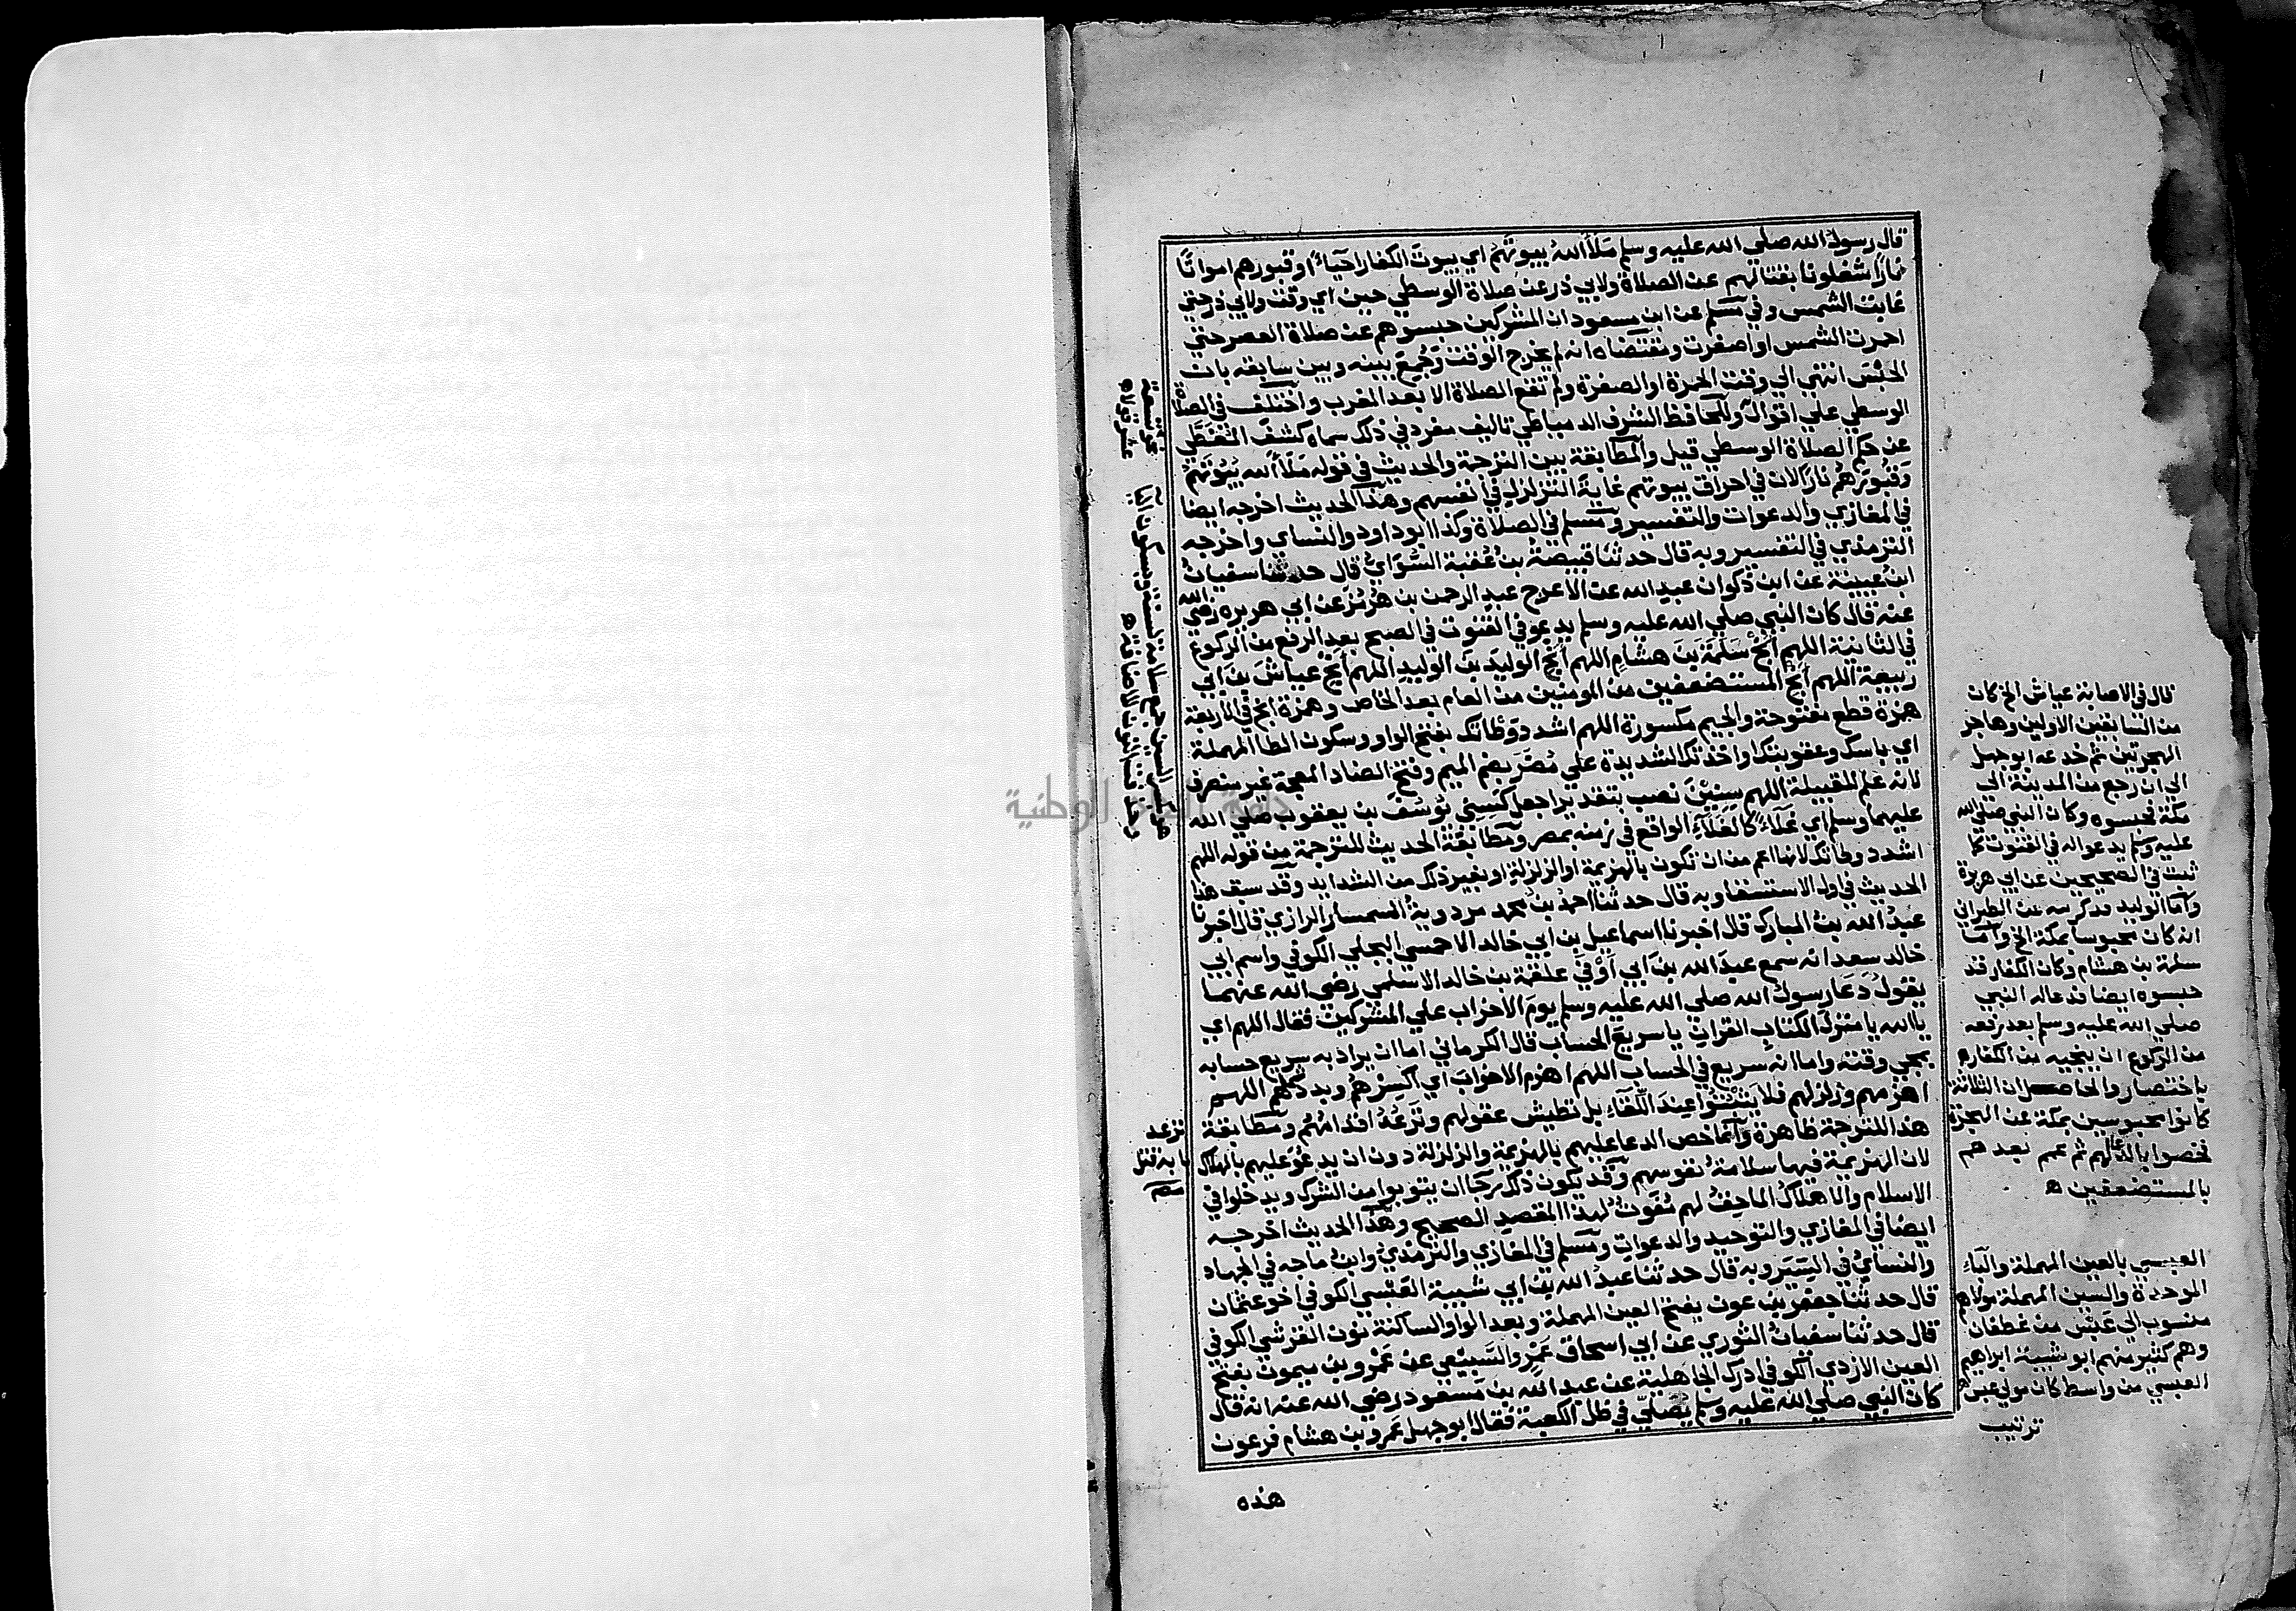 قال رسول الله صلي الله عليه وسلم مَلَأ اللهُ بيوتَهُم اي بيوت الكفار احياءً او قبورهم امواتا
نارًا شغلونا بقتالهم عن الصلاة ولابي ذر عن صلاة الوسطي حين اي وقت ولابي ذر حتي
غابت الشمس وفي مسلم عن ابن مسعود ان المشركين حبسوهم عن صلاة العصر حتي
احمرت الشمس او اصفرت ومقتضاه انه لم يخرج الوقت وجُمِعَ بينه وبين سابقه بان
الحبْسَ انتهي الي وقت الحمرة او الصفرة ولم تقع الصلاة الا بعد المغرب واختلف في الصلاة
الوسطي علي اقوال وللحافظ الشرف الدمياطي تاليف مفرد في ذلك سماه كشف المغَطَّي
عن حكم الصلاة الوسطي قيل والمطابقة بين الترجمة والحديث في قوله ملأ الله بيوتَهُم
وقبُورَهُم نارًا لان في احراق بيوتهم غايةُ التزلزل في انفسهم وهذا الحديث اخرجه ايضا
في المغازي والدعوات والتفسير ومسلم في الصلاة وكذا ابو داود والنساي واخرجه
الترمذي في التفسير وبه قال حدثنا قبيصةُ بنُ عُقبة السُّوَاي قال حدثنا سفيانُ
ابنُ عيينة عن ابن ذكوان عبد الله عن الاعرج عبد الرحمن بن هُرْمُز عن ابي هريره رضي الله
عنه قال كان النبي صلي الله عليه وسلم يدعو في القنوت في الصبح بعد الرفع من الركوع
في الثانية اللهم أنْجِ سَلَمَةَ بنَ هشام اللهم أنج الوليدَ بنَ الوليد اللهم أنْجِ عياشَ بنَ ابي
ربيعة اللهم أنْجِ المستضعفين من المومنين من العام بعد الخاص وهمزة انج في الاربعة
همزة قطع مفتوحة والجيم مكسورة اللهم اشدد وَطْاتك بفتح الواو وسكون الطا المهملة
اي باسك وعقوبتك واخذتك الشديدة علي مُضَرَ بضم الميم وفتح الضاد المعجمة غير منصرف
لانه علم للقبيلة اللهم سِنِيْنَ نصب بتقدير اجعل كَسِني يُوسُفَ بن يعقوب صلي الله
عليهما وسلم اي غَلاءً كالغلاءِ الواقع في زمنه بمصر ومطابقة الحديث للترجمة من قوله اللهم
اشدد وطاتك لانها اعم من ان تكون بالهزيمة او الزلزلة او بغير ذلك من الشدايد وقد سبق هذا
الحديث في اول الاستسقا وبه قال حدثنا احمدُ بنُ محمد مردوية السمسار الرازي قال اخبرنا
عبدُ الله بنُ المبارك قال اخبرنا اسماعيل بن ابي خالد الاحمسي البجلي الكوفي واسم ابي
خالد سعد انه سمع عبدَ الله بنَ ابي أوْفي علقمة بن خالد الاسلمي رضي الله عنهما
يقولُ دَعَا رسولُ الله صلي الله عليه وسلم يومَ الاحزاب علي المشركين فقال اللهم اي
يا الله يا مُنزِلَ الكتاب القران يا سريعَ الحساب قال الكرماني اما ان يراد به سريع حسابه
بمجي وقته واما انه سريع في الحساب اللهم اهزم الاحزابَ اي اكسِرْهُم وبدِّد شملَهُم اللهم
اهزمهم وزلزلهم فلا يثبُتُوا عندَ اللِّقاءِ بل تطيش عقولهم وتُرْعَدُ اقدامُهُم ومطابقة
هذا للترجمة ظاهرة وانما خص الدعا عليهم بالهزيمة والزلزلة دون ان يدعُوَ عليهم بالهلاك
لان الهزيمة فيها سلامةُ نفوسهم وقد يكون ذلك رجاان يتوبوا من الشرك ويدخلوا في
الاسلام واما هلاكُ الماحِقُ لهم مُفَوِّتٌ لهذا المقصد الصحيح وهذا الحديث اخرجه
ايضا في المغازي والتوحيد والدعوات ومسلم في المغازي والترمذي وابنُ ماجه في الجهاد
والنسايُ في السِّيَر وبه قال حدثنا عبدُ الله بن ابي شيبة العَبْسي الكوفي اخو عثمان
قال حدثنا جعفر بن عون بفتح العين المهملة وبعد الواو الساكنة نون القرشي الكوفي
قال حدثنا سفيانُ الثوري عن ابي اسحاق عَمْرٍو السَّبِيْعي عن عَمْرو بن ميمون بفتح
العين الازدي الكوفي ادرك الجاهلية عن عبد الله بن مسعود رضي الله عنه انه قال
كان النبي صلي الله عليه وسلم يُصَلّي في ظل الكعبة فقال ابو جهل عَمرو بن هشام فرعون
هذه
قال في الاصابة عياش الخ كان
من السابقين الاولين وهاجر
الهجرتين ثم خدعه ابو جهل
الي ان رجع من المدينة الي
مكة فحبسوه وكان النبي صلي الله
عليه وسلم يدعو اله في القنوت كما
ثبت في الصحيحين عن ابي هريرة
واما الوليد فذكر عن الطبراني
انه كان محبوسا بمكة الخ واما
سلمة بن هشام وكان الكفار قد
حبسوه ايضا فدعا له النبي
صلي الله عليه وسلم بعد رفعه
من الركوع ان ينجيه من الكفار ه
باختصار والحاصل ان الثلاثة
كانوا محبوسين بمكة عن الهجرة
فخصوا بالدعا لهم ثم عمم بعدهم
بالمستضعفين ه
العبسي بالعين المهملة والباء
الموحدة والسين المهملة مولاهم
منسوب الي عَبْس من غطفان
وهم كثير منهم ابو شيبة ابراهيم
العبسي من واسط كان مولي عبس
ترتيب
هو بكسر السين جمع سلامة لسنة وبسكون اليا
وحذفت النون للاضافة ه
ترعد